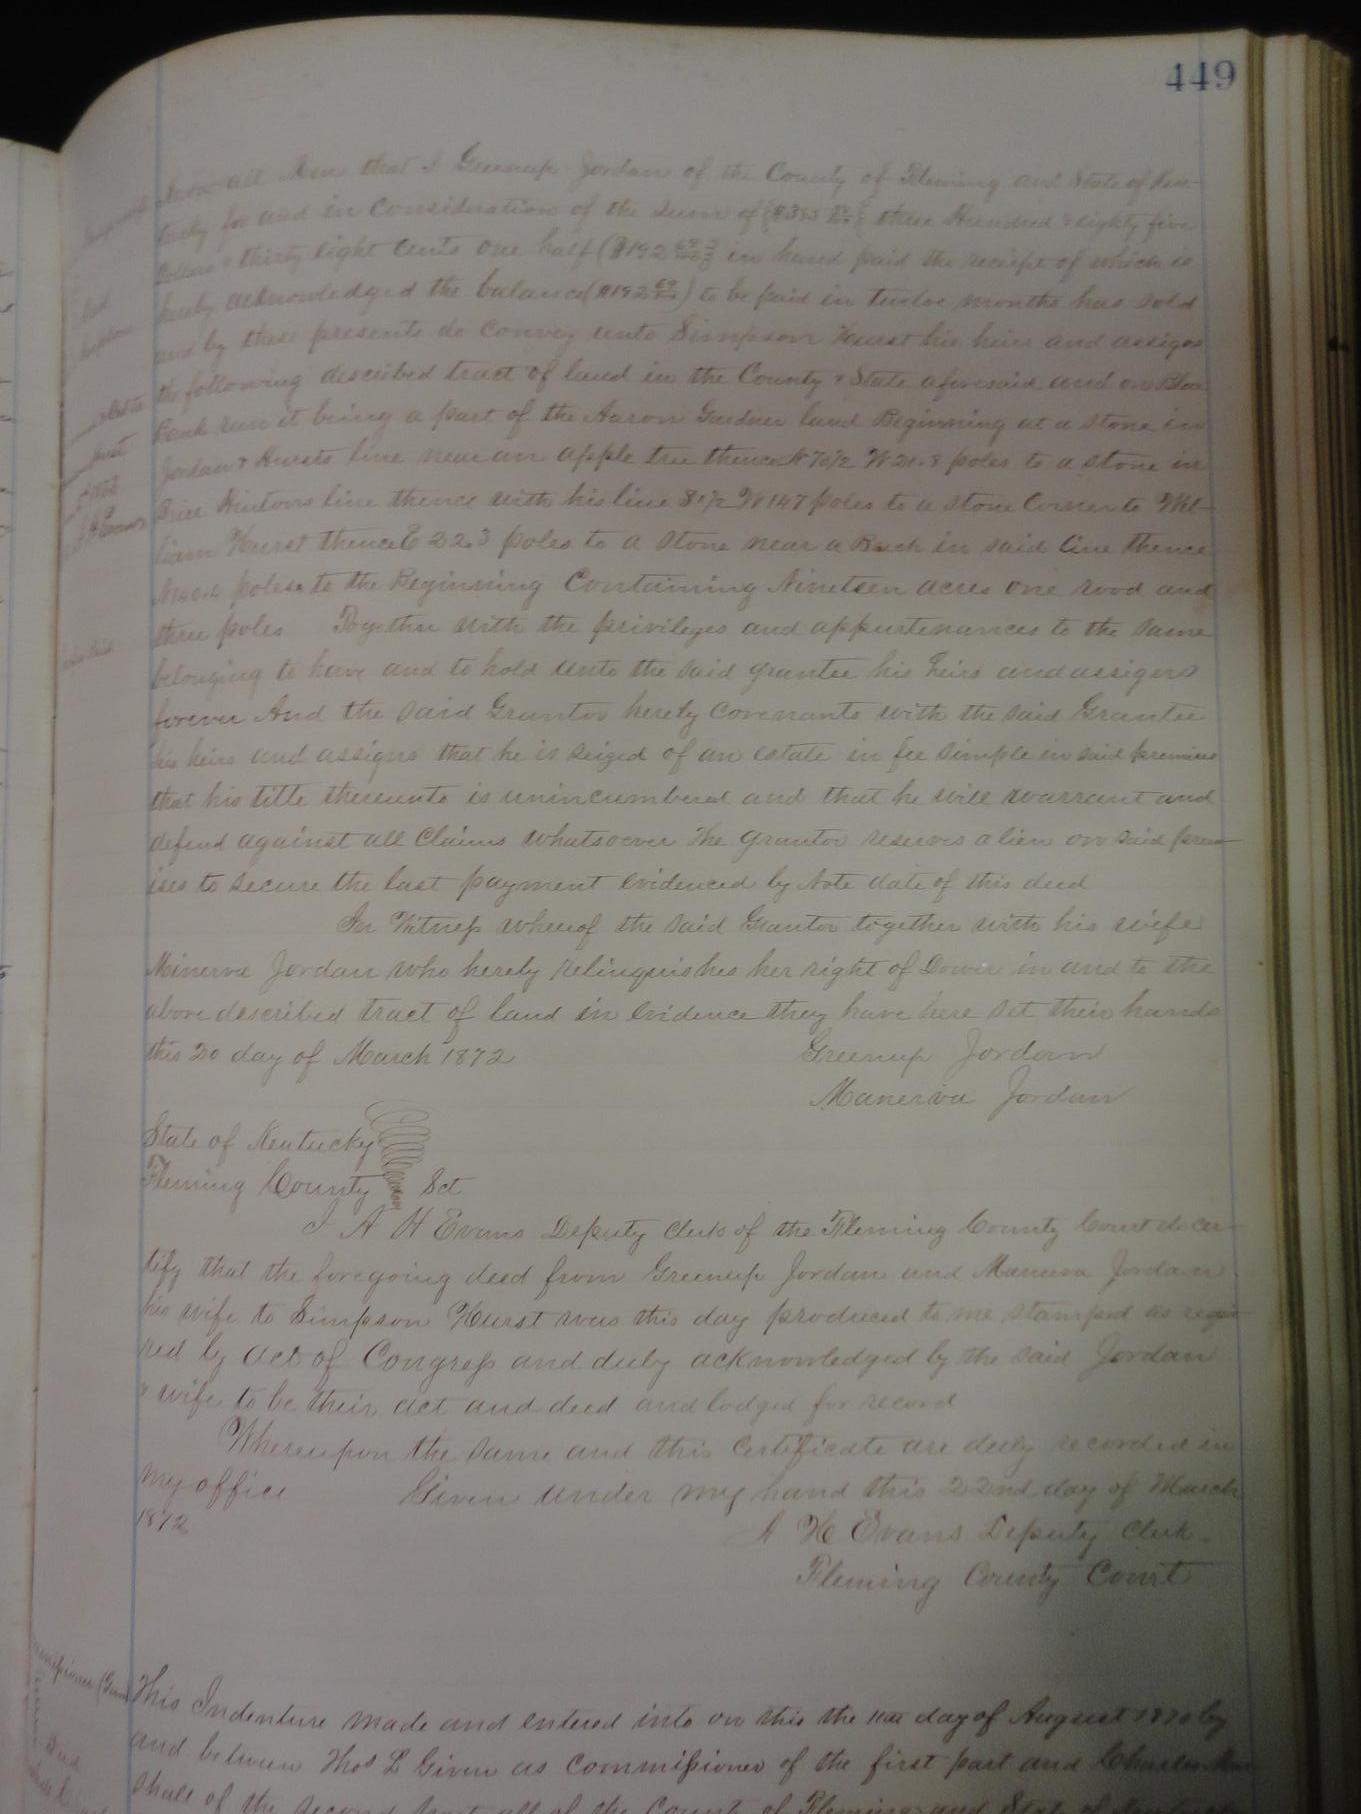 449
Know all Men that I Greenup Jordan of the County of Fleming and State of Ken-
tucky for and in Consideration of the sum of three Hundred & eighty five
Dollars & thirty eight Cents one half ($192 in hand paid the receipt of which is
hereby acknowledged the balance ($192 69/100) to be paid in twelve months has sold
and by these presents do Convey unto Simpson Hurst his heirs and assigns
the following described tract of land in the County & State aforesaid and on Blue
Bank run it being a part of the Aaron Gardner land Beginning at a stone in
Jordan & Hursts line near an apple tree thence N 70½ W 20.8 poles to a stone in
line thence with his line S 1½ W 147 poles to a stone Corner to Wil-
liam Hurst thence E 22.3 poles to a stone near a in said line thence
poles to the Beginning Containing Nineteen acres one rood and
three poles Together with the privileges and appurtenances to the same
belonging to have and to hold unto the said grantee his heirs and assigns
forever And the said Grantor hereby Covenants with the said Grantee
his heirs and assigns that he is seized of an estate in fee simple in said premises
that his title thereunto is unincumbered and that he will warrant and
defend against all Claims whatsoever The grantor reserves a lien on said prem-
ises to secure the last payment evidenced by Note date of this deed
In Witness whereof the said Grantor together with his wife
Minerva Jordan who hereby relinquishes her right of Dower in and to the
above described tract of land in evidence they have here set their hands
this 20 day of March 1872 Greenup Jordan
Manerva Jordan
State of Kentucky
Fleming County Sct
I A H Evans Deputy Clerk of the Fleming County Court do cer-
tify that the foregoing deed from Greenup Jordan and Manerva Jordan
his wife to Simpson Hurst was this day produced to me stamped as requi-
red by act of Congress and duly acknowledged by the said Jordan
& wife to be their act and deed and lodged for record
Whereupon the same and this Certificate are duly recorded in
my office Given under my hand this 22nd day of March
1872
A H Evans Deputy Clerk
Fleming County Court
This Indenture made and entered into on this the day of August by
and between Thos L Given as Commissioner of the first part and Charles Mar-
shall of the second part all of the County of Fleming and State of